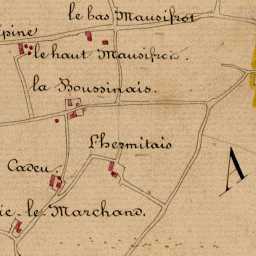 le bas Mausifrot
pine
le haut Mausifrot.
la Boussinais.
l'hermitais
Cadeu.
A
ie-le-Marchand.